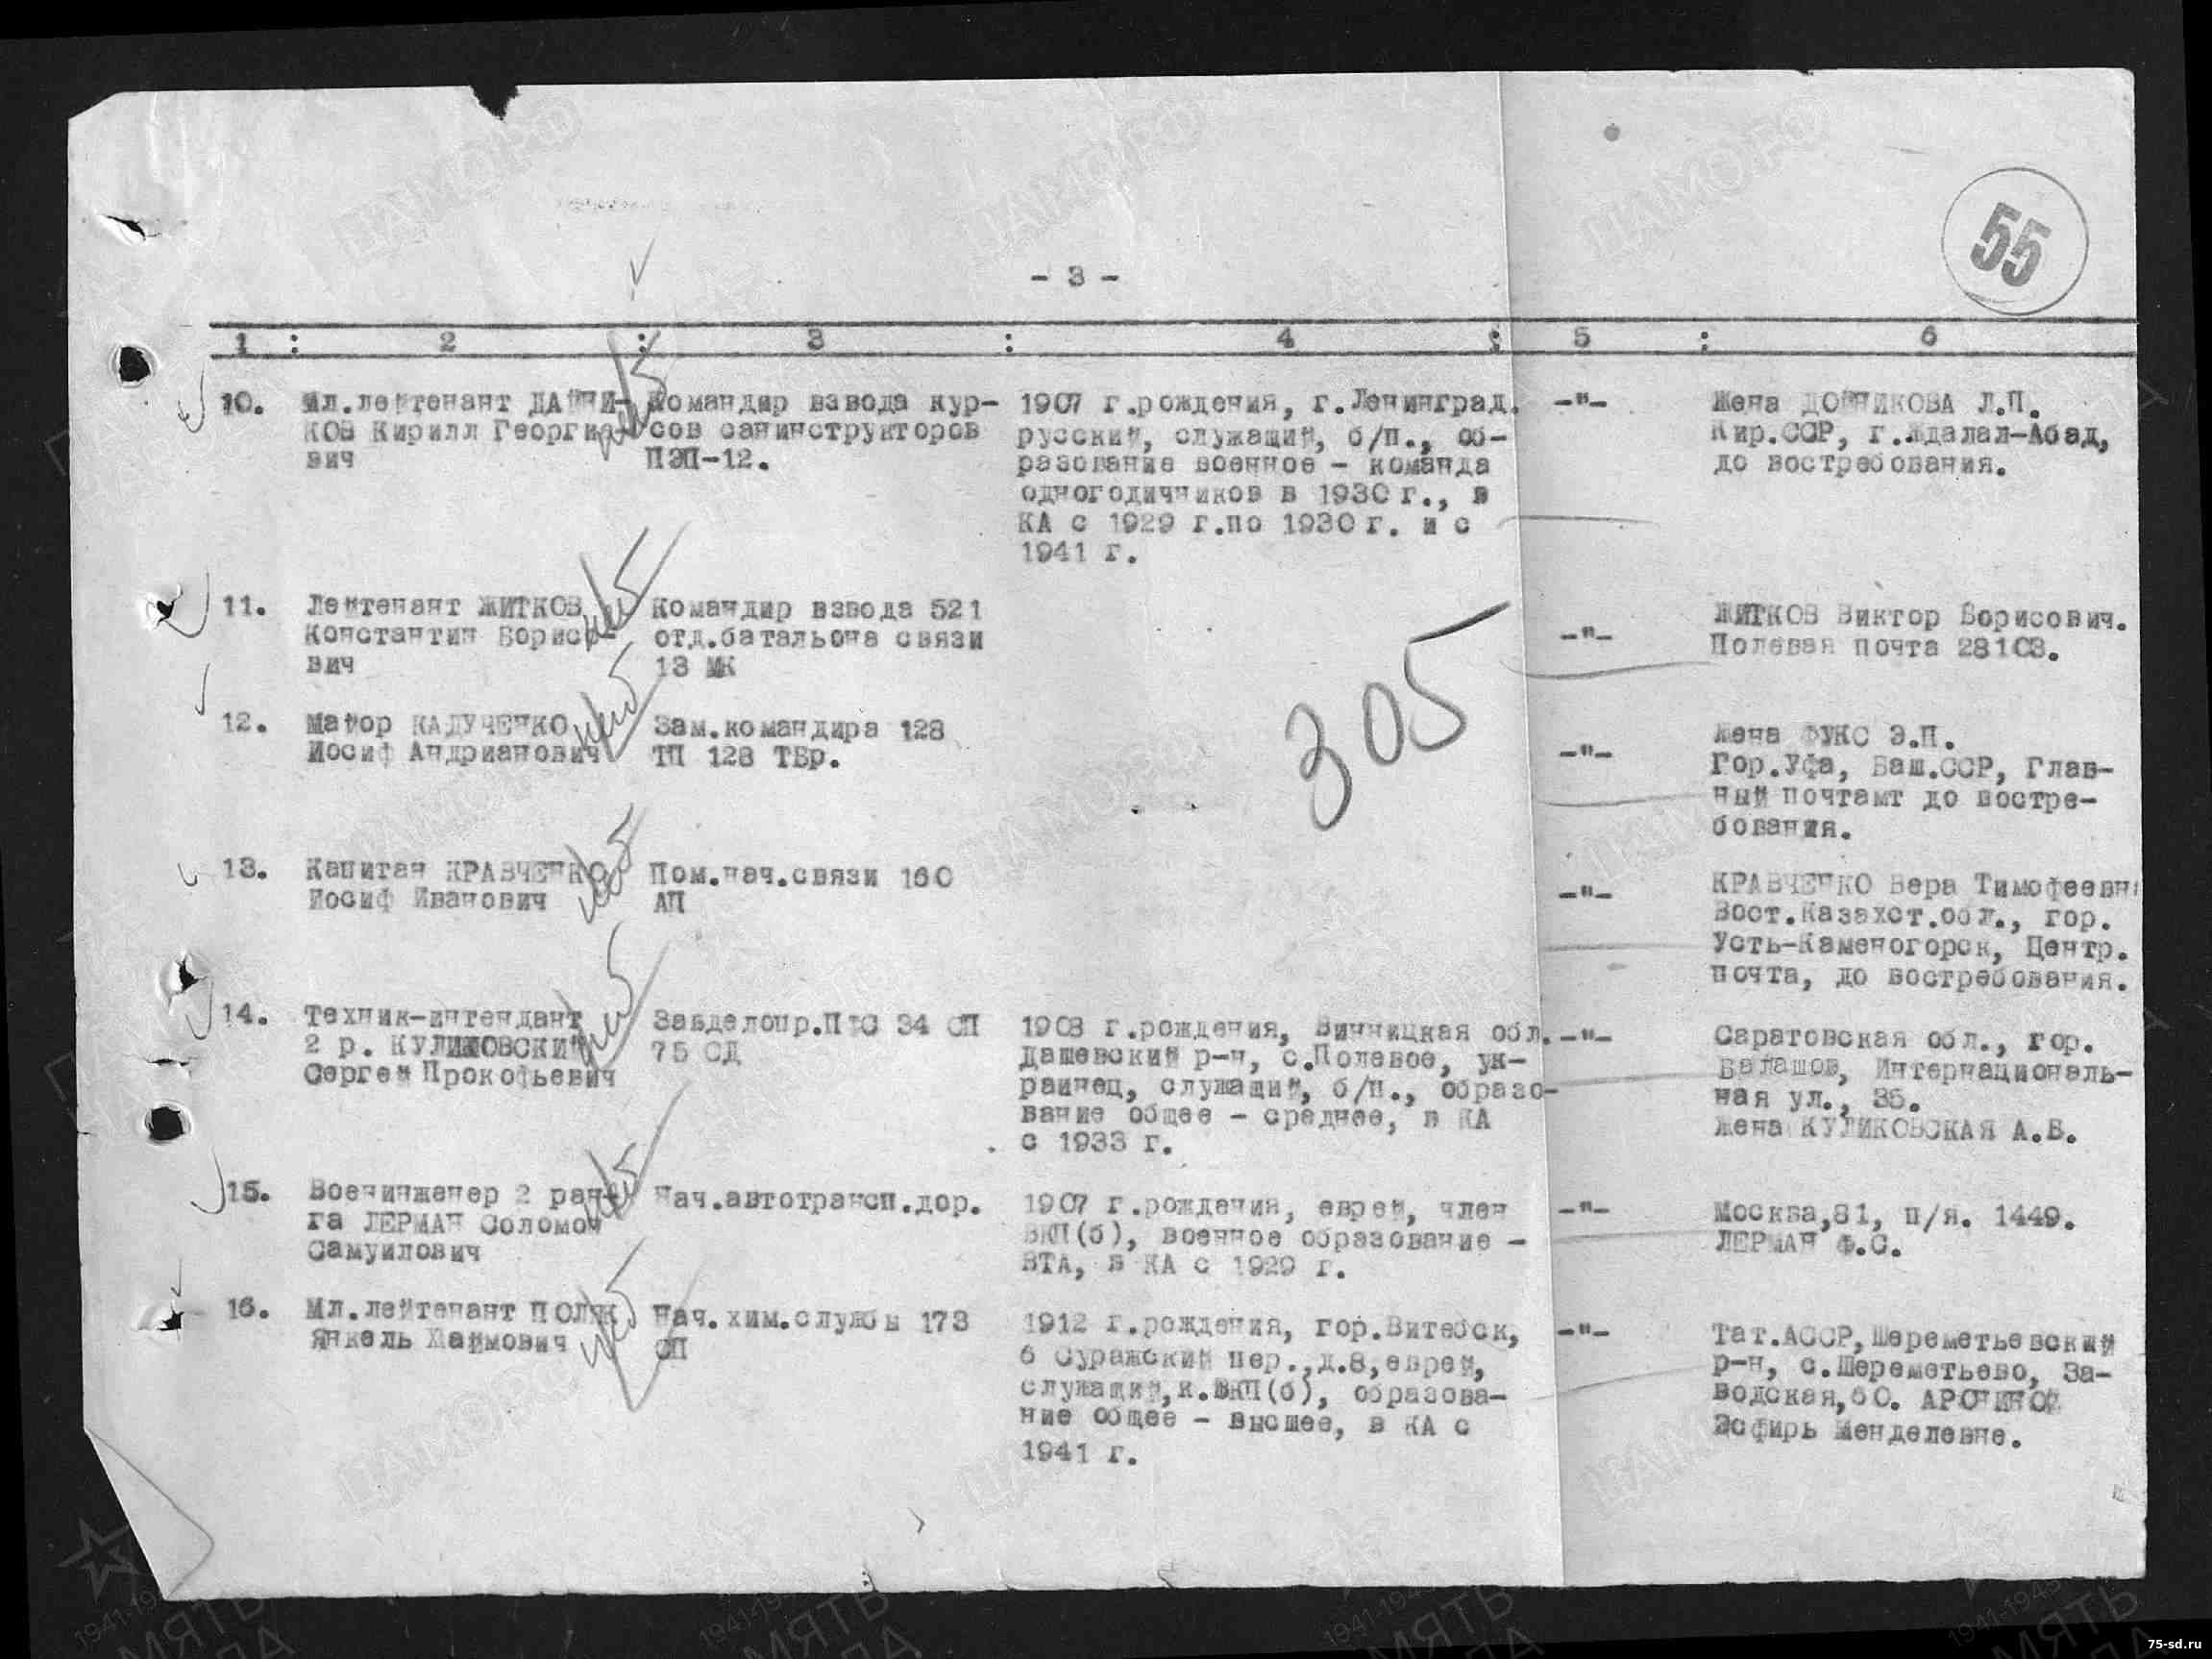 55
- 3 -
1 : 2 : 3 : 4 : 5 : 6
10. Мл.лейтенант ДАЙНИ- Командир взвода кур- 1907 г.рождения, г.Ленинград. -"- Жена ДОЙНИКОВА Л.П.
КОВ Кирилл Георгие- сов санинструкторов русский, служащий, б/п., об- Кир.ССР, г.Ждалал-Абад,
вич ПЭП-12. разование военное - команда до востребования.
одногодичников в 1930 г., в
КА с 1929 г.по 1930 г. и с
1941 г.
11. Лейтенант ЖИТКОВ Командир взвода 521 ЖИТКОВ Виктор Борисович.
Константин Борисо- отд.батальона связи -"- Полевая почта 28103.
вич 13 МК
305
12. Майор КАДУЧЕНКО Зам.командира 128 Жена ФУКС Э.П.
Иосиф Андрианович ТП 128 ТБр. -"- Гор.Уфа, Баш.ССР, Глав-
ный почтамт до востре-
бования.
13. Капитан КРАВЧЕНКО Пом.нач.связи 160 -"- КРАВЧЕНКО Вера Тимофеевна
Иосиф Иванович АП Вост.Казахст.обл., гор.
Усть-Каменогорск, Центр.
почта, до востребования.
14. Техник-интендант Завделопр.ПФС 34 СП 1908 г.рождения, Винницкая обл. -"- Саратовская обл., гор.
2 р. КУЛИКОВСКИЙ 75 СД Дашевский р-н, с.Полевое, ук- Балашов, Интернациональ-
Сергей Прокофьевич раинец, служащий, б/п., образо- ная ул., 35.
вание общее - среднее, в КА Жена КУЛИКОВСКАЯ А.В.
с 1933 г.
15. Военинженер 2 ран- Нач.автотрансп.дор. 1907 г.рождения, еврей, член -"- Москва,81, п/я. 1449.
га ЛЕРМАН Соломон ВКП(б), военное образование - ЛЕРМАН Ф.С.
Самуилович ВТА, в КА с 1929 г.
16. Мл.лейтенант ПОЛЯК Нач.хим.службы 173 1912 г.рождения, гор.Витебск, -"- Тат.АССР,Шереметьевский
Янкель Хаймович СП 6 Суражский пер.,д.8,еврей, р-н, с.Шереметьево, За-
служащий,к.ВКП(б), образова- водская,60. АРОНИНОЙ
ние общее - высшее, в КА с Эсфирь Менделевне.
1941 г.
75-sd.ru